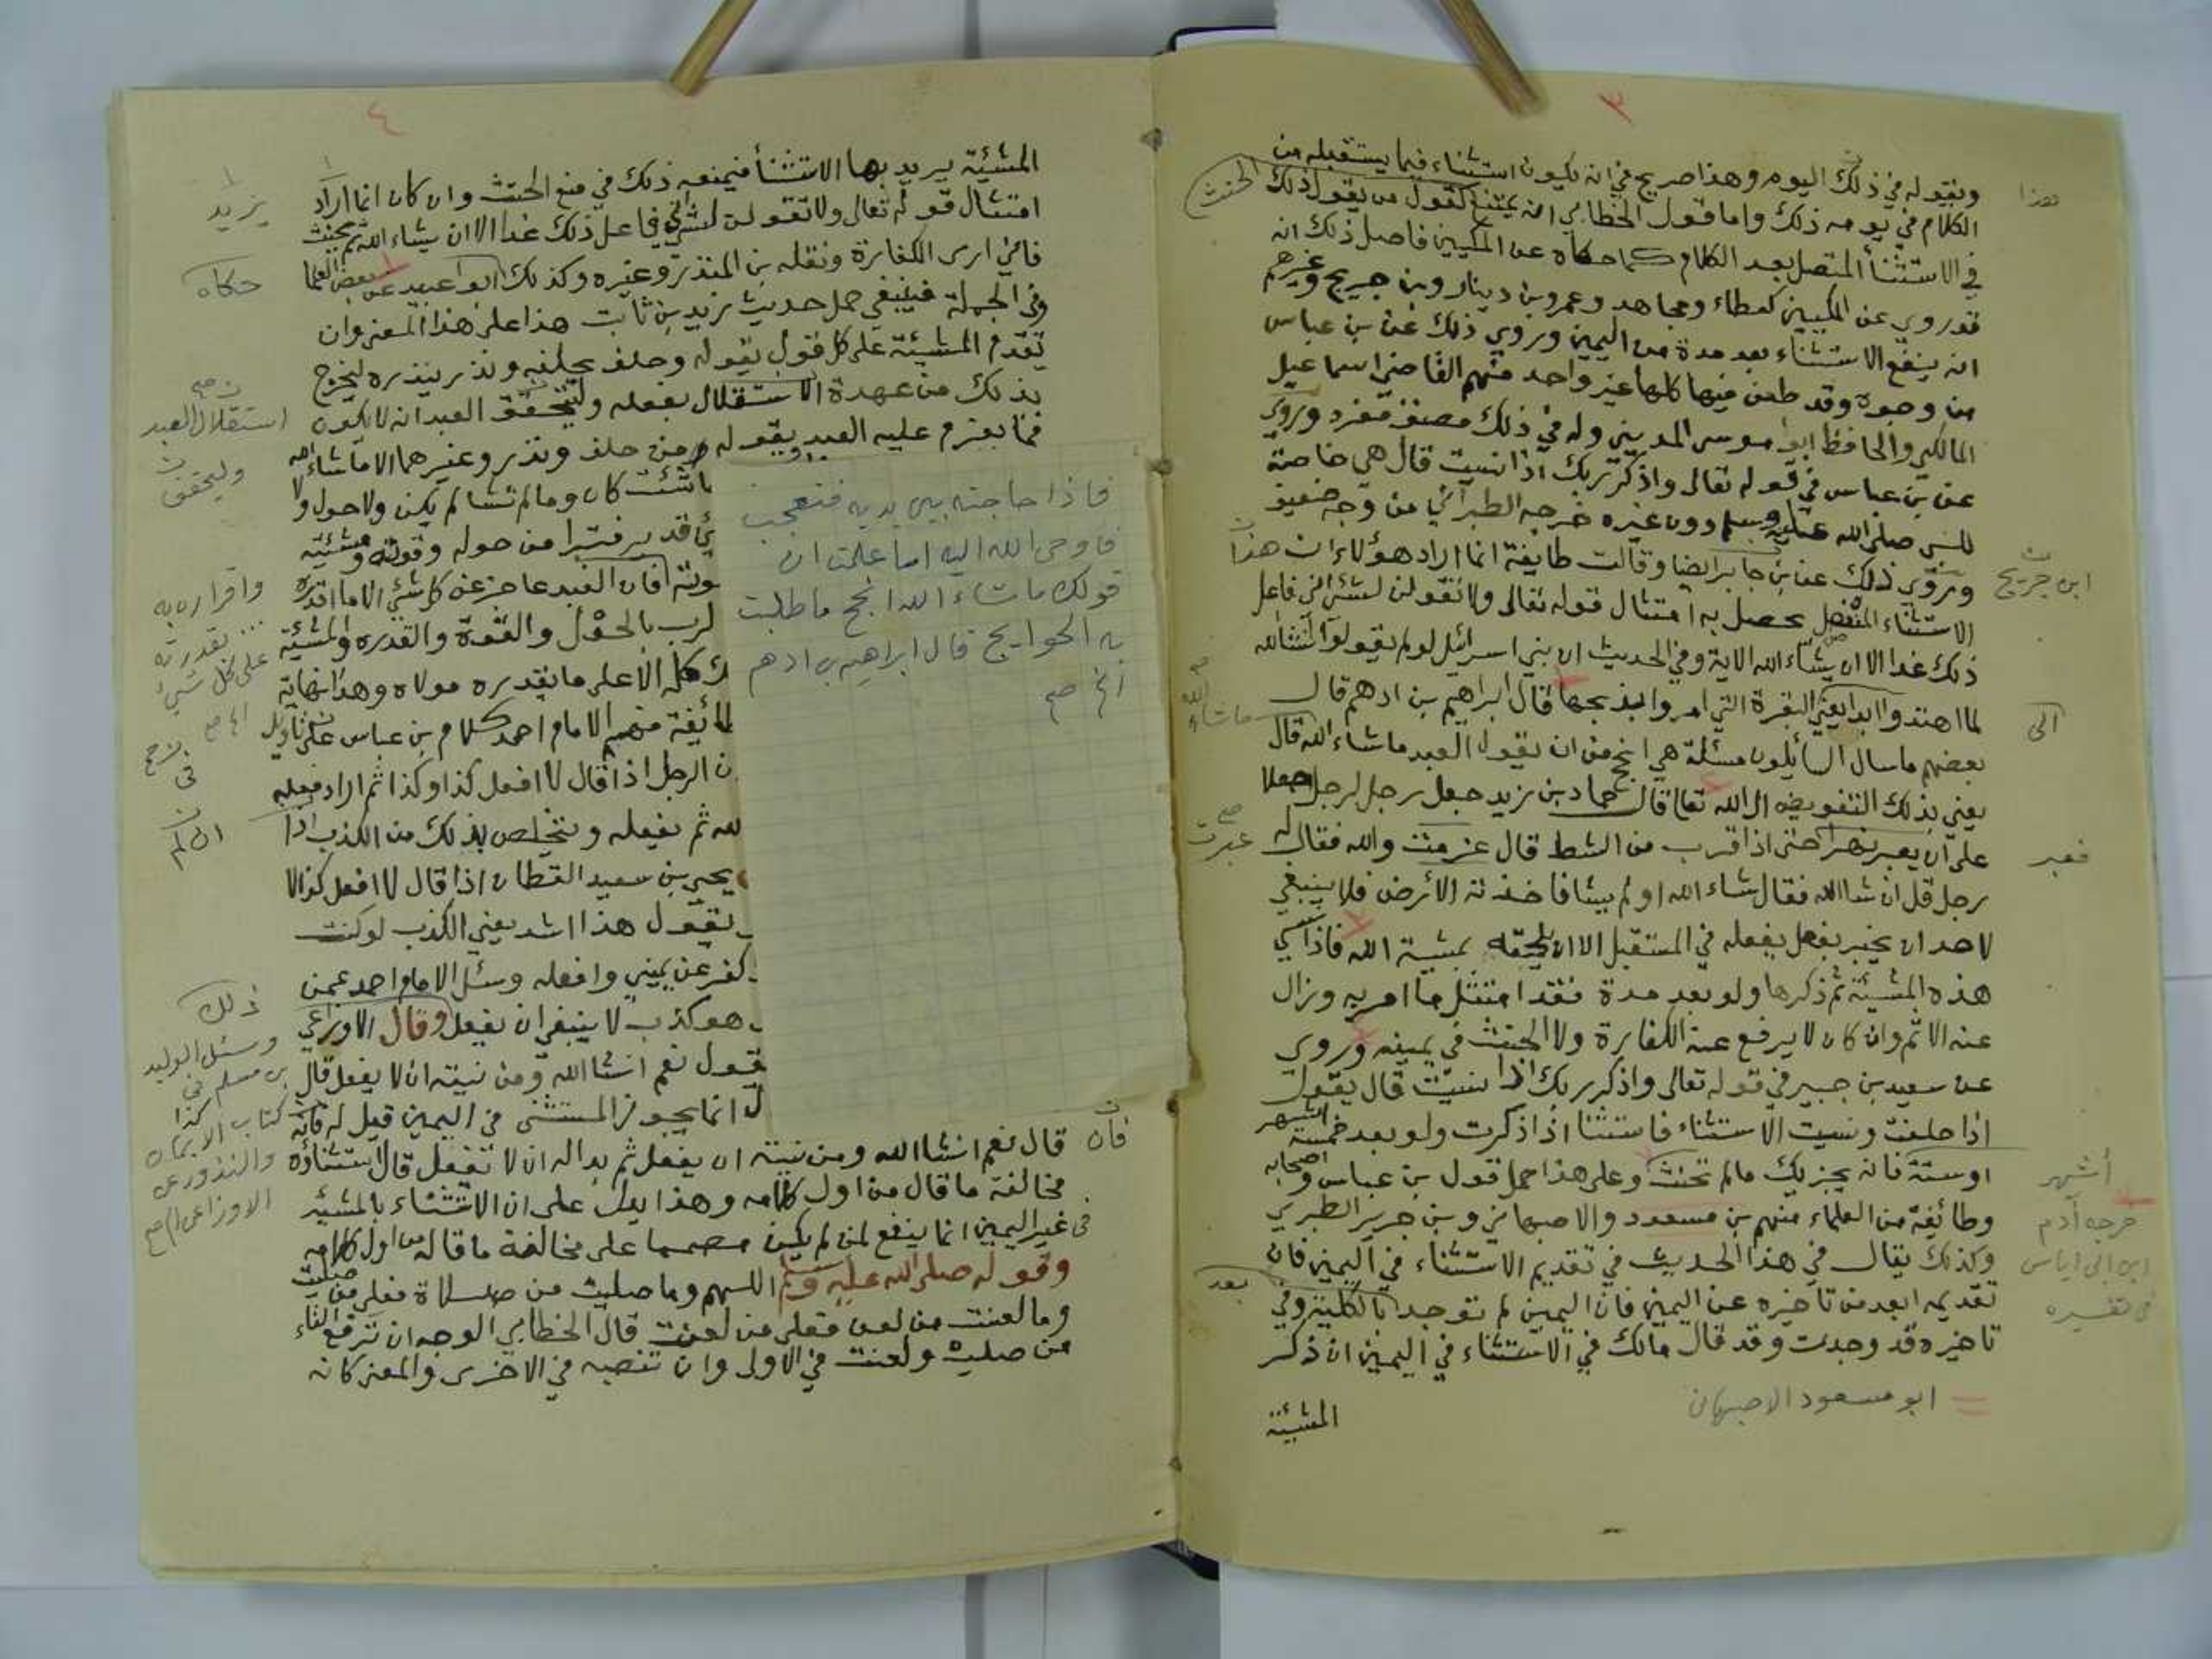 ٣
ونقوله في ذلك اليوم وهذا صريح في انه يكون استثناء فيما يستقبله من
الكلام في يومه ذلك واما قول الخطابي انه يمتنع كقول من يقول ذلك
الحنث
هذا
في الاستثنأ المتصل بعد الكلام كما حكاه عن المكيين فاصل ذلك انه
قد روي عن المكيين كعطاء ومجاهد وعمرو بن دينار وبن جريج وغيرهم
انه ينفع الاستثناء بعد مدة من اليمين وروي ذلك عن بن عباس
من وجوه وقد طعن فيها كلها غير واحد منهم القاضي اسماعيل
المالكي والحافظ ابو موسى المديني وله في ذلك مصنف مفرد وروي
عن بن عباس في قوله تعالى واذكر ربك اذا نسيت قال هي خاصة
للنبي صلى الله عليه وسلم دون غيره خرجه الطبراني من وجه ضعيف
وروي ذلك عن بن جابر ايضا وقالت طايفة انما اراد هؤلاء ان هذا
ابن جريج
الاستثناء المنفصل يحصل به امتثال قوله تعالى ولا تقولن لشئ اني فاعل
ذلك غدا الا ان يشاء الله الاية وفي الحديث ان بني اسرائيل لو لم يقولوا انشأ الله
لما اهتدوا ابدا يعني البقرة التي امروا بذبحها قال ابراهيم بن ادهم قال
الى
بعضهم ما سال السايلون مسئلة هي انجح من ان يقول العبد ما شاء الله قال
ما شاء الله صح
يعني بذلك التفويض الى الله تعالى قال حماد بن زيد جعل رجل لرجل جعلا
على ان يعبر نهرا حتى اذا قرب من الشط قال عزمت والله فقال له
عبرت صح
فعبر
رجل قل ان شا الله فقال شاء الله او لم يشا فاخذته الارض فلا ينبغي
لاحد ان يخبر بفعل يفعله في المستقبل الا ان يلحقه بمشية الله فاذا نسي
هذه المشيئة ثم ذكرها ولو بعد مدة فقد امتثل ما امر به وزال
عنه الاثم وان كان لا يرفع عنه الكفارة ولا الحنث في يمينه وروي
عن سعيد بن جبير في قوله تعالى واذكر ربك اذا نسيت قال يقول
اذا حلفت ونسيت الاستثناء فاستثنا اذا ذكرت ولو بعد خمسة اشهر
او ستة فانه يجزيك مالم تحنث وعلى هذا حمل قول بن عباس واصحابه
أشهر
خرجه آدم
ابن ابي اياس
في تفسيره
وطائفة من العلماء منهم بن مسعود والاصبهاني وبن جرير الطبري
وكذلك يقال في هذا الحديث في تقديم الاستثناء في اليمين فان
تقديمه ابعد من تاخيره عن اليمين فان اليمين لم توجد بالكلية وفي
بعد
تاخيره قد وجدت وقد قال مالك في الاستثناء في اليمين ان ذكر
= ابو مسعود الاصبهاني
المشيئة
٤
المشيئة يريد بها الاستثنأ فيمنعه ذلك في منع الحنث وان كان انما اراد
يزيد
امتثال قوله تعالى ولا تقولن لشئ اني فاعل ذلك غدا الا ان يشاء الله ثم يحنث
فاني ارى الكفارة ونقله بن المنذر وغيره وكذلك ابو عبيد عن بعض العلما
حكاه
وفي الجملة فينبغي حمل حديث زيد بن ثابت هذا على هذا المعنى وان
تقدم المشيئة على كل قول نقوله وحلف يحلفه ونذر ينذره ليخرج
بذلك من عهدة الاستقلال بفعله وليتحقق العبد انه لا يكون
استقلال العبد
وليحقق
فما يعزم عليه العبد بقوله ومن حلف ونذر وغيرهما الا ما شاء الله
ما شئت كان وما لم تشا لم يكن ولا حول ولا
من حوله وقوته ومشيئته
فان العبد عاجز عن كل شئ الا ما اقدره
واقراره به
بقدرته
على كل شئ
الرب بالحول والقوة والقدره والمشيئة
كله الا على ما يقدره مولاه وهذا نهاية
طائفة منهم الامام احمد كلام بن عباس على تاويل
ان الرجل اذا قال لا افعل كذا وكذا ثم اراد فعله
الله ثم يفعله ويتخلص بذلك من الكذب اذا
يحيى بن سعيد القطان اذا قال لا افعل كذا لا
يقول هذا اشد يعني الكذب لو كنت
كفر عن يميني وافعله وسئل الامام احمد عمن
هو كذب لا ينبغي ان يفعل وقال الاوزاعي
ذلك
وسئل الوليد
بن مسلم في
كتاب الايمان
والنذور عن
الاوزاعي صح
يقول نعم انشا الله ومن نيته ان لا يفعل قال
انما يجوز المستثنى في اليمين قيل له فانه
قال نعم انشا الله ومن نيته ان يفعل ثم بدا له ان لا تفعل قال استثناؤه
فان
مخالفة ما قال من اول كلامه وهذا يدل على ان الاستثناء بالمشيئة
في غير اليمين انما ينفع لمن لم يكن مصمما على مخالفة ما قاله من اول كلامه
وقوله صلى الله عليه وسلم اللهم وما صليت من صلاة فعلى من صليت
وما لعنت من لعن فعلى من لعنت قال الخطابي الوجه ان ترفع التاء
من صليت ولعنت في الاولى وان تنصبه في الاخرى والمعنى كانه
فاذا حاجته بين يديه فتعجب
فاوحى الله اليه اما علمت ان
قولك ما شاء الله انجح ما طلبت
به الحوايج قال ابراهيم بن ادهم
الخ صح